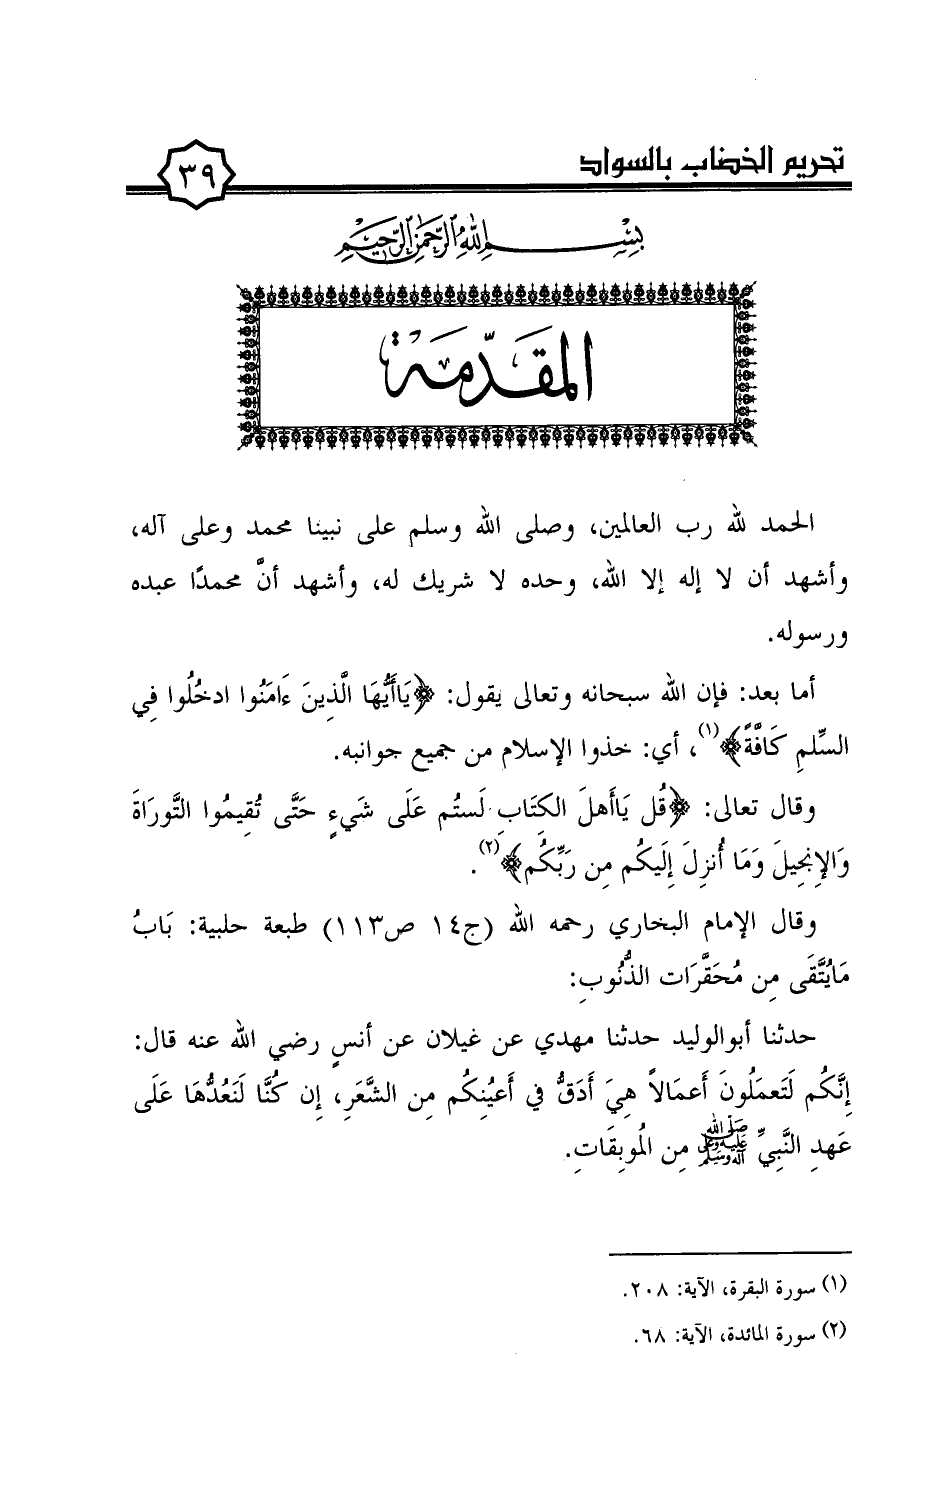 تحريم الخضاب بالسواد
٣٩
بسم الله الرحمن الرحيم
المقدّمة
الحمد لله رب العالمين، وصلى الله وسلم على نبينا محمد وعلى آله،
وأشهد أن لا إله إلا الله، وحده لا شريك له، وأشهد أنَّ محمدًا عبده
ورسوله.
أما بعد: فإن الله سبحانه وتعالى يقول: ﴿يَاأَيُّهَا الَّذِينَ ءَامَنُوا ادخُلُوا فِي
السِّلمِ كَافَّةً﴾(١)، أي: خذوا الإسلام من جميع جوانبه.
وقال تعالى: ﴿قُل يَاأَهلَ الكِتَابِ لَستُم عَلَى شَيءٍ حَتَّى تُقِيمُوا التَّورَاةَ
وَالإِنجِيلَ وَمَا أُنزِلَ إِلَيكُم مِن رَبِّكُم﴾(٢).
وقال الإمام البخاري رحمه الله (ج١٤ ص١١٣) طبعة حلبية: بَابُ
مَايُتَّقَى مِن مُحَقَّرَات الذُّنُوبِ:
حدثنا أبوالوليد حدثنا مهدي عن غيلان عن أنسٍ رضي الله عنه قال:
إِنَّكُم لَتَعمَلُونَ أَعمَالاً هِيَ أَدَقُّ في أَعيُنِكُم مِن الشَّعَرِ، إِن كُنَّا لَنَعُدُّهَا عَلَى
عَهدِ النَّبِيِّ ﷺ مِن المُوبِقَاتِ.
(١) سورة البقرة، الآية: ٢٠٨.
(٢) سورة المائدة، الآية: ٦٨.